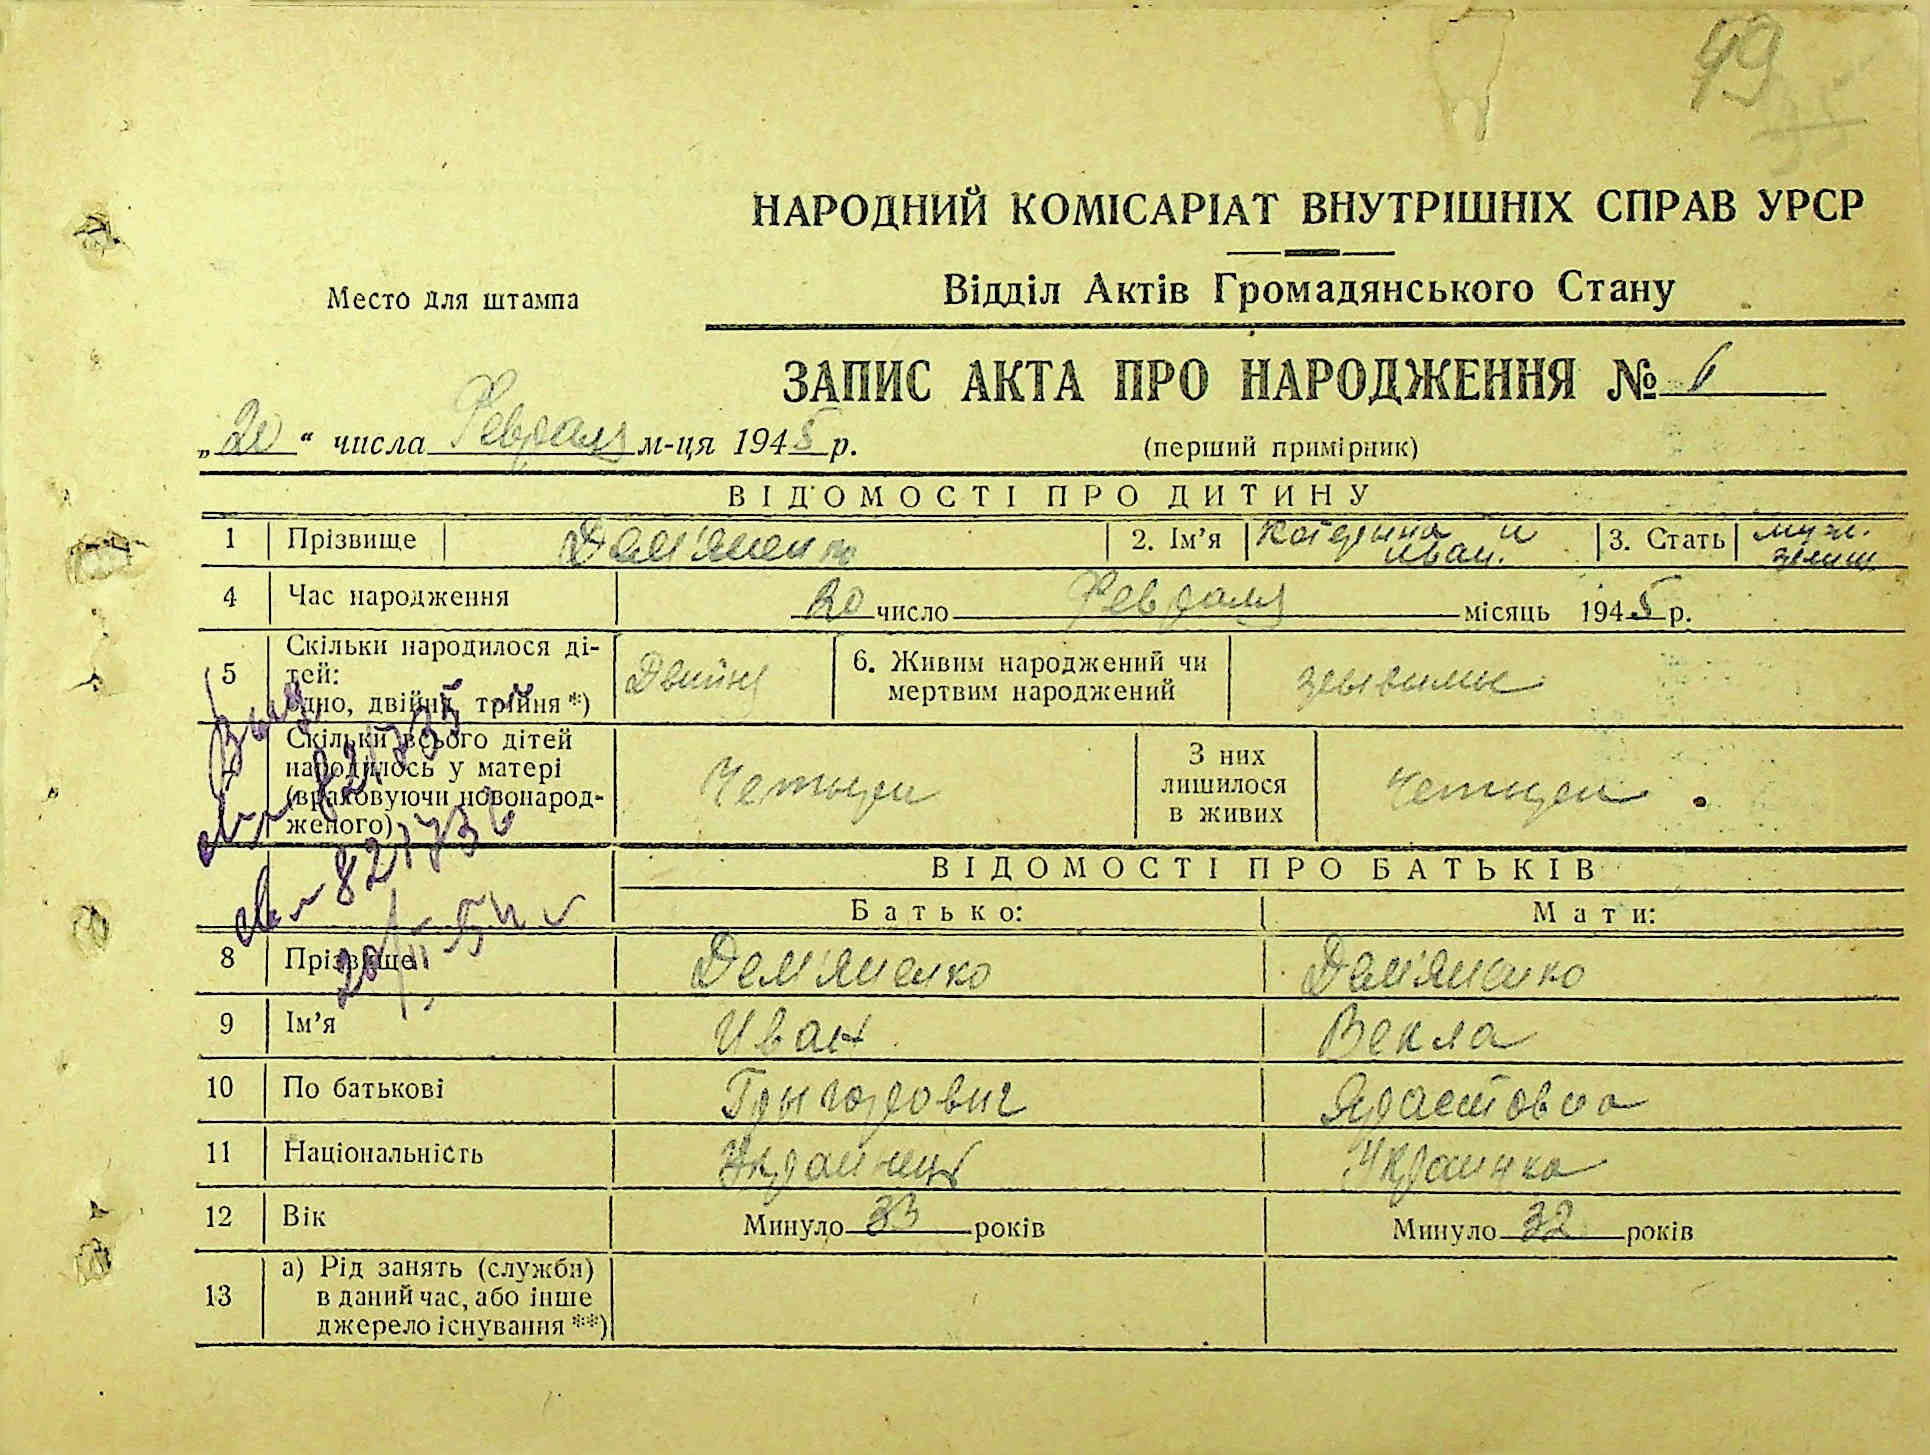 49
95
НАРОДНИЙ КОМІСАРІАТ ВНУТРІШНІХ СПРАВ УРСР
Відділ Актів Громадянського Стану
Место для штампа
ЗАПИС АКТА ПРО НАРОДЖЕННЯ № 6
„20“ числа Февраля м-ця 1945 р.
(перший примірник)
ВІДОМОСТІ ПРО ДИТИНУ
1 Прізвище Дем'яненко 2. Ім'я Катерина и Иван. 3. Стать муж. женщ.
4 Час народження 20 число Февраля місяць 1945 р.
5 Скільки народилося ді-
тей:
одно, двійня, трійня *) Двийня 6. Живим народжений чи
мертвим народжений живыми
7 Скільки всього дітей
народилось у матері
(враховуючи новонарод-
женого) Четыри З них
лишилося
в живих Четыри
821735
821736
20/II-54
ВІДОМОСТІ ПРО БАТЬКІВ
Батько: Мати:
8 Прізвище Дем'яненко Дем'яненко
9 Ім'я Иван Векла
10 По батькові Грыгорович
11 Національність Украинец Украинка
12 Вік Минуло 33 років Минуло 32 років
13 а) Рід занять (служби)
в даний час, або інше
джерело існування **)